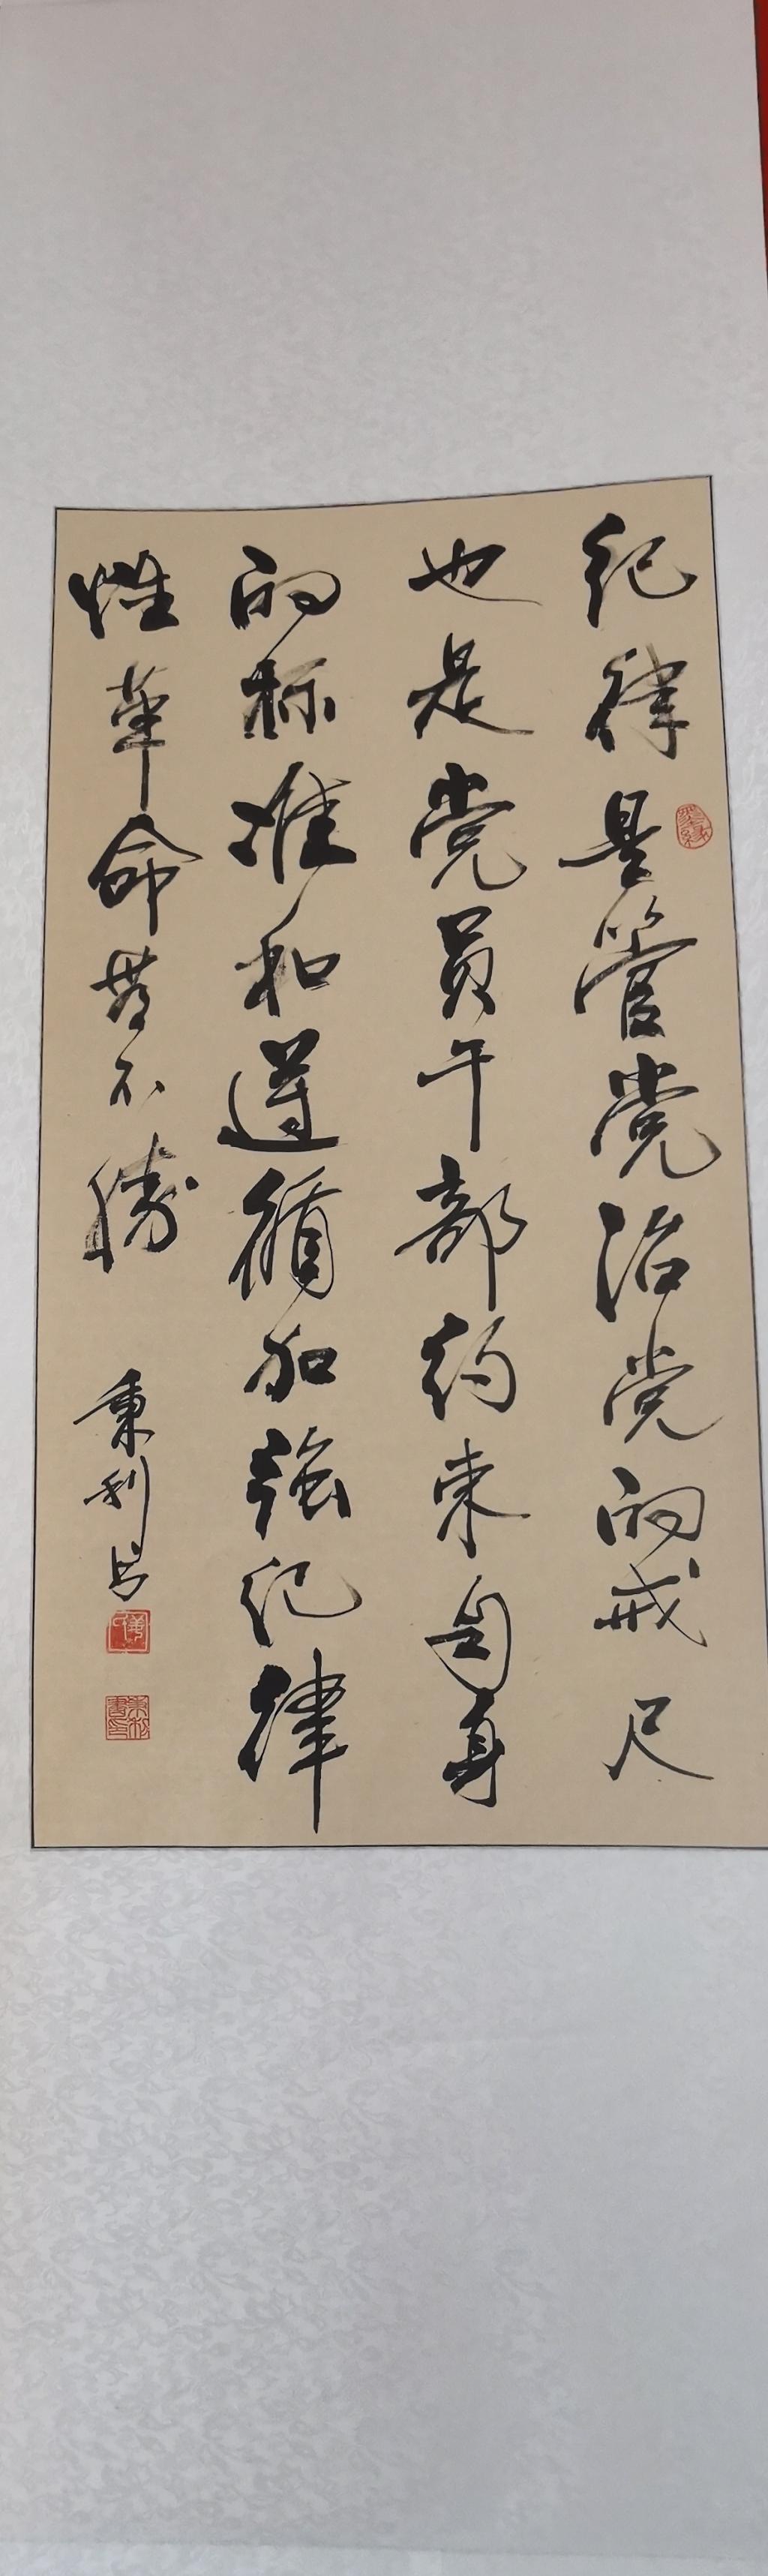 纪律是管党治党的戒尺
也是党员干部约束自身
的标准和遵循加强纪律
性革命无不勝
秉利书